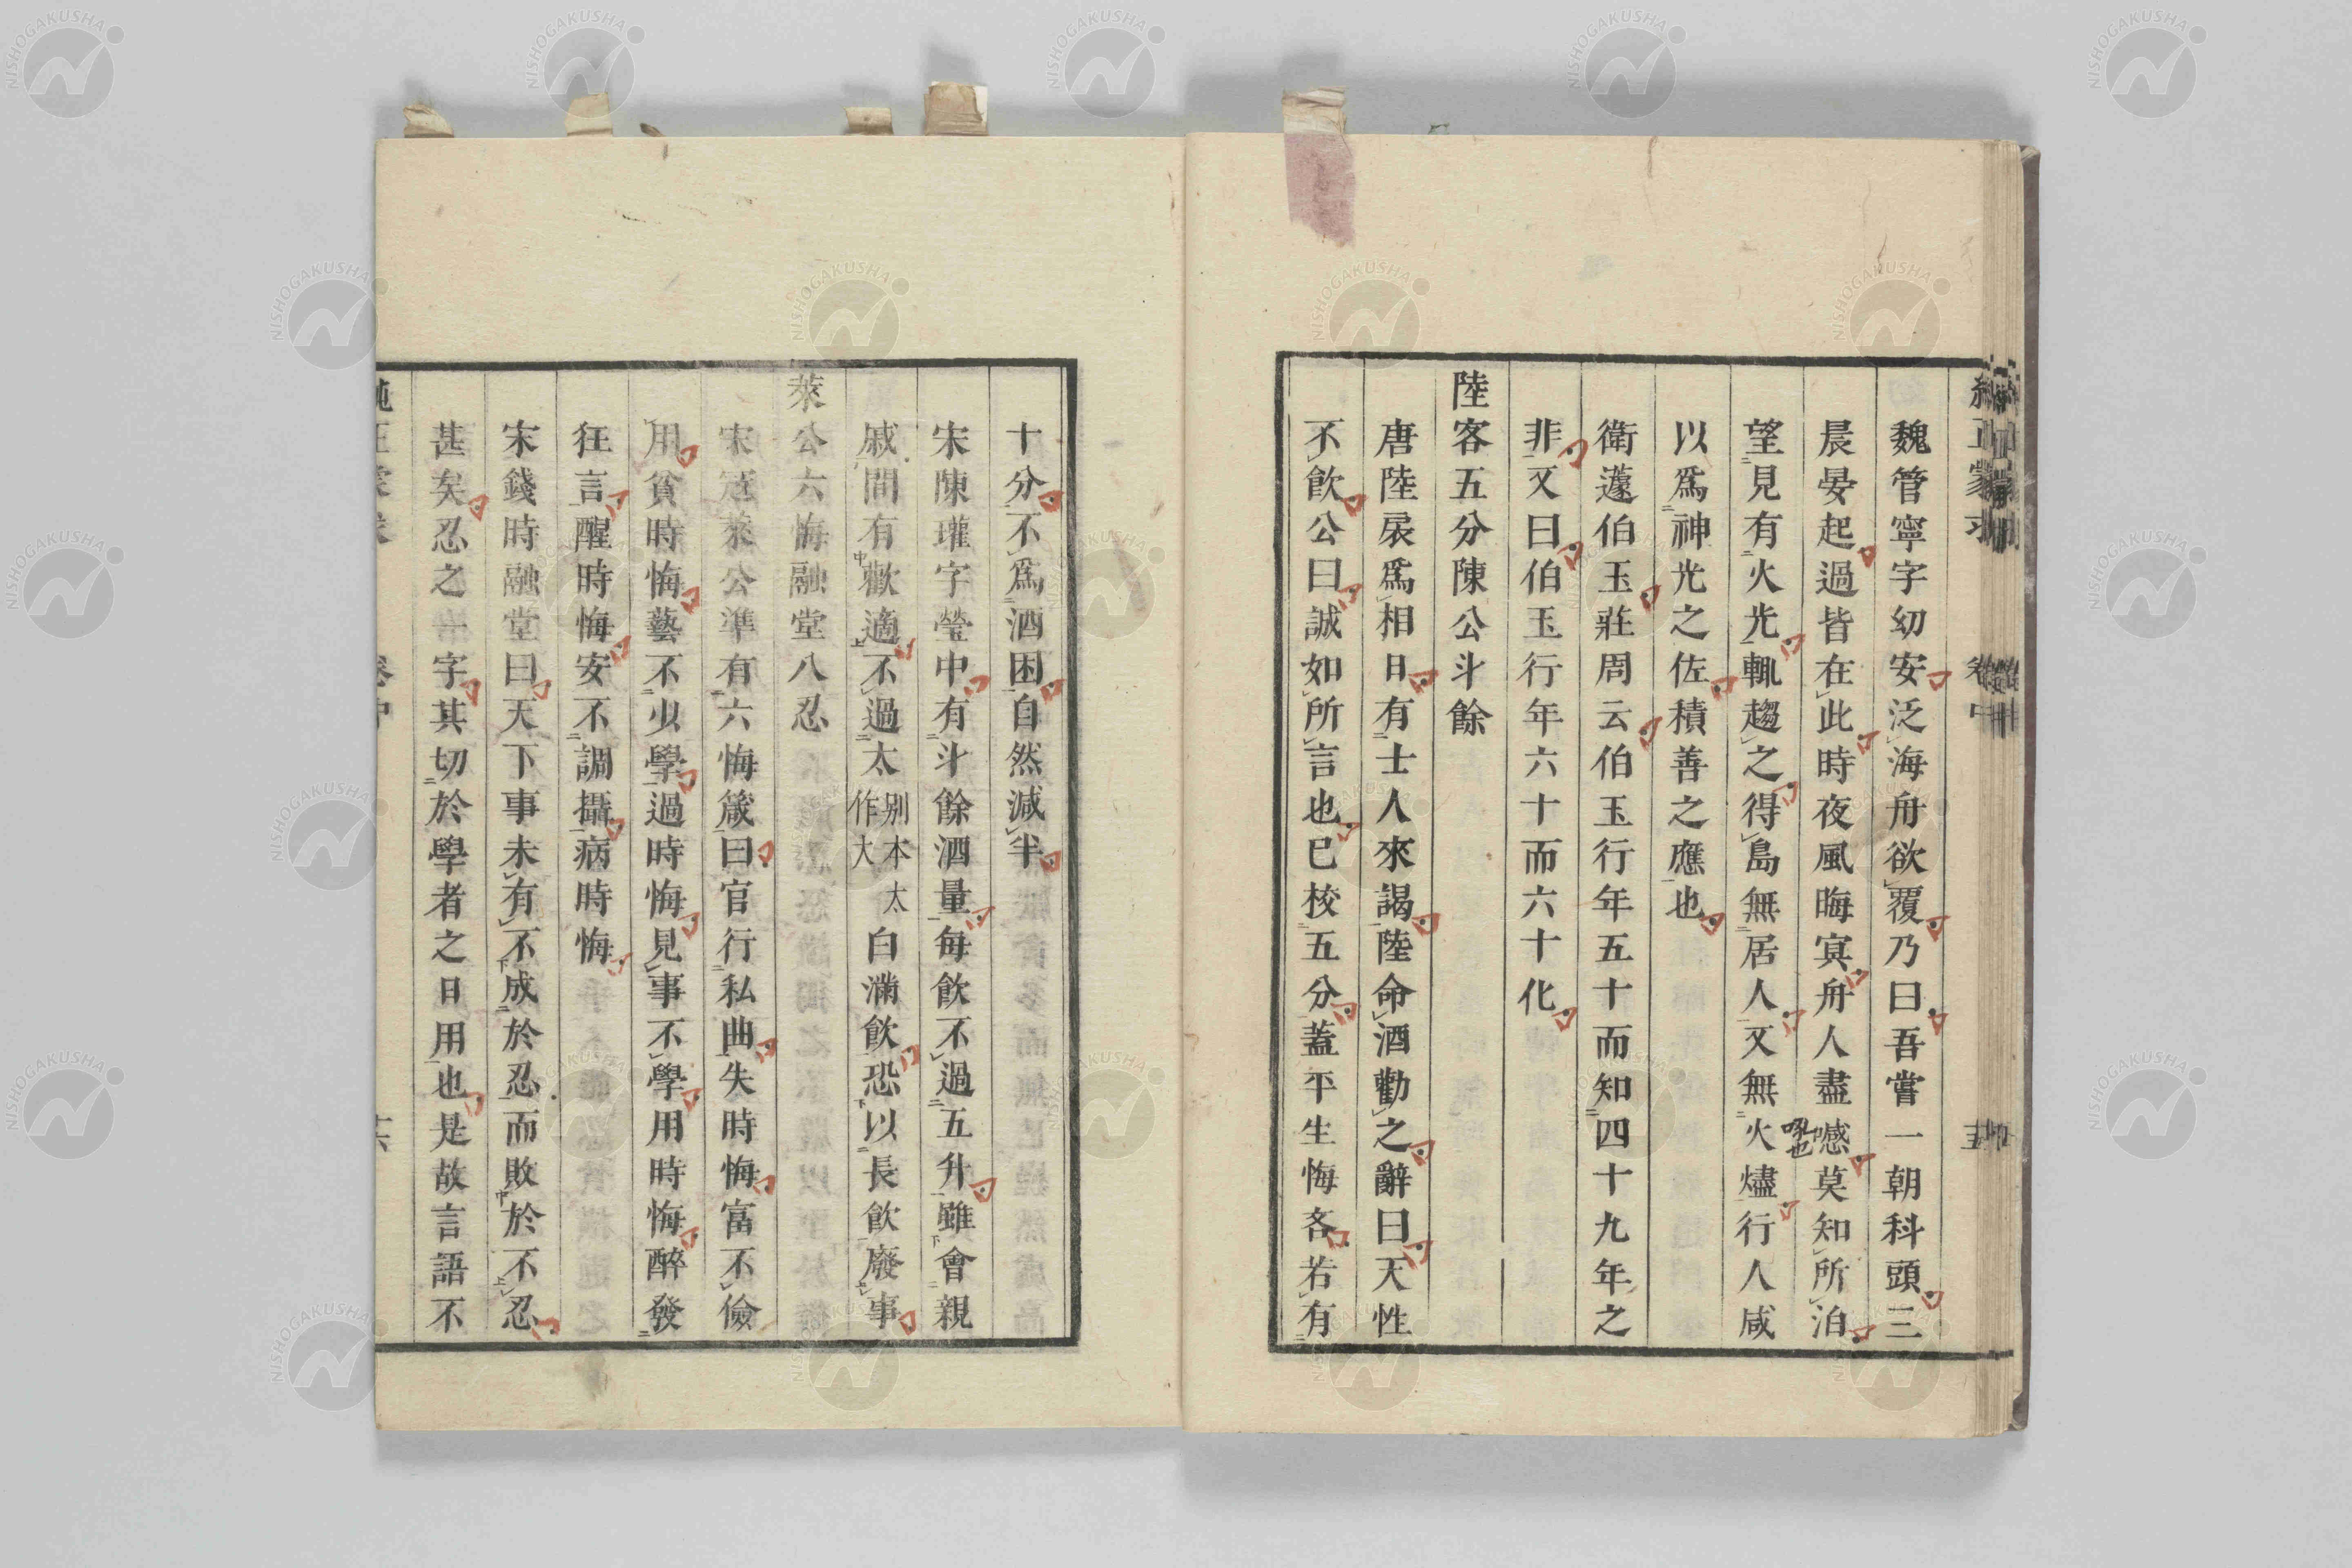 魏管寧字幼安泛海舟欲覆乃曰吾嘗一朝科頭三
晨晏起過皆在此時夜風晦冥舟人盡慼莫知所泊
吼也
望見有火光輒趨之得島無居人又無火燼行人咸
以爲神光之佐積善之應也
衛蘧伯玉莊周云伯玉行年五十而知四十九年之
非又曰伯玉行年六十而六十化
陸客五分陳公斗餘
唐陸扆爲相日有士人來謁陸命酒勸之辭曰天性
不飲公曰誠如所言也已校五分蓋平生悔吝若有
十分不爲酒困自然減半
宋陳瓘字瑩中有斗餘酒量每飲不過五升雖會親
戚間有歡適不過太別本太作大白滿飲恐以長飲廢事
萊公六悔融堂八忍
宋冠萊公準有六悔箴曰官行私曲失時悔富不儉
用貧時悔藝不少學過時悔見事不學用時悔醉發
狂言醒時悔安不調攝病時悔
宋錢時融堂曰天下事未有不成於忍而敗於不忍
甚矣忍之一字其切於學者之日用也是故言語不
NISHOGAKUSHA